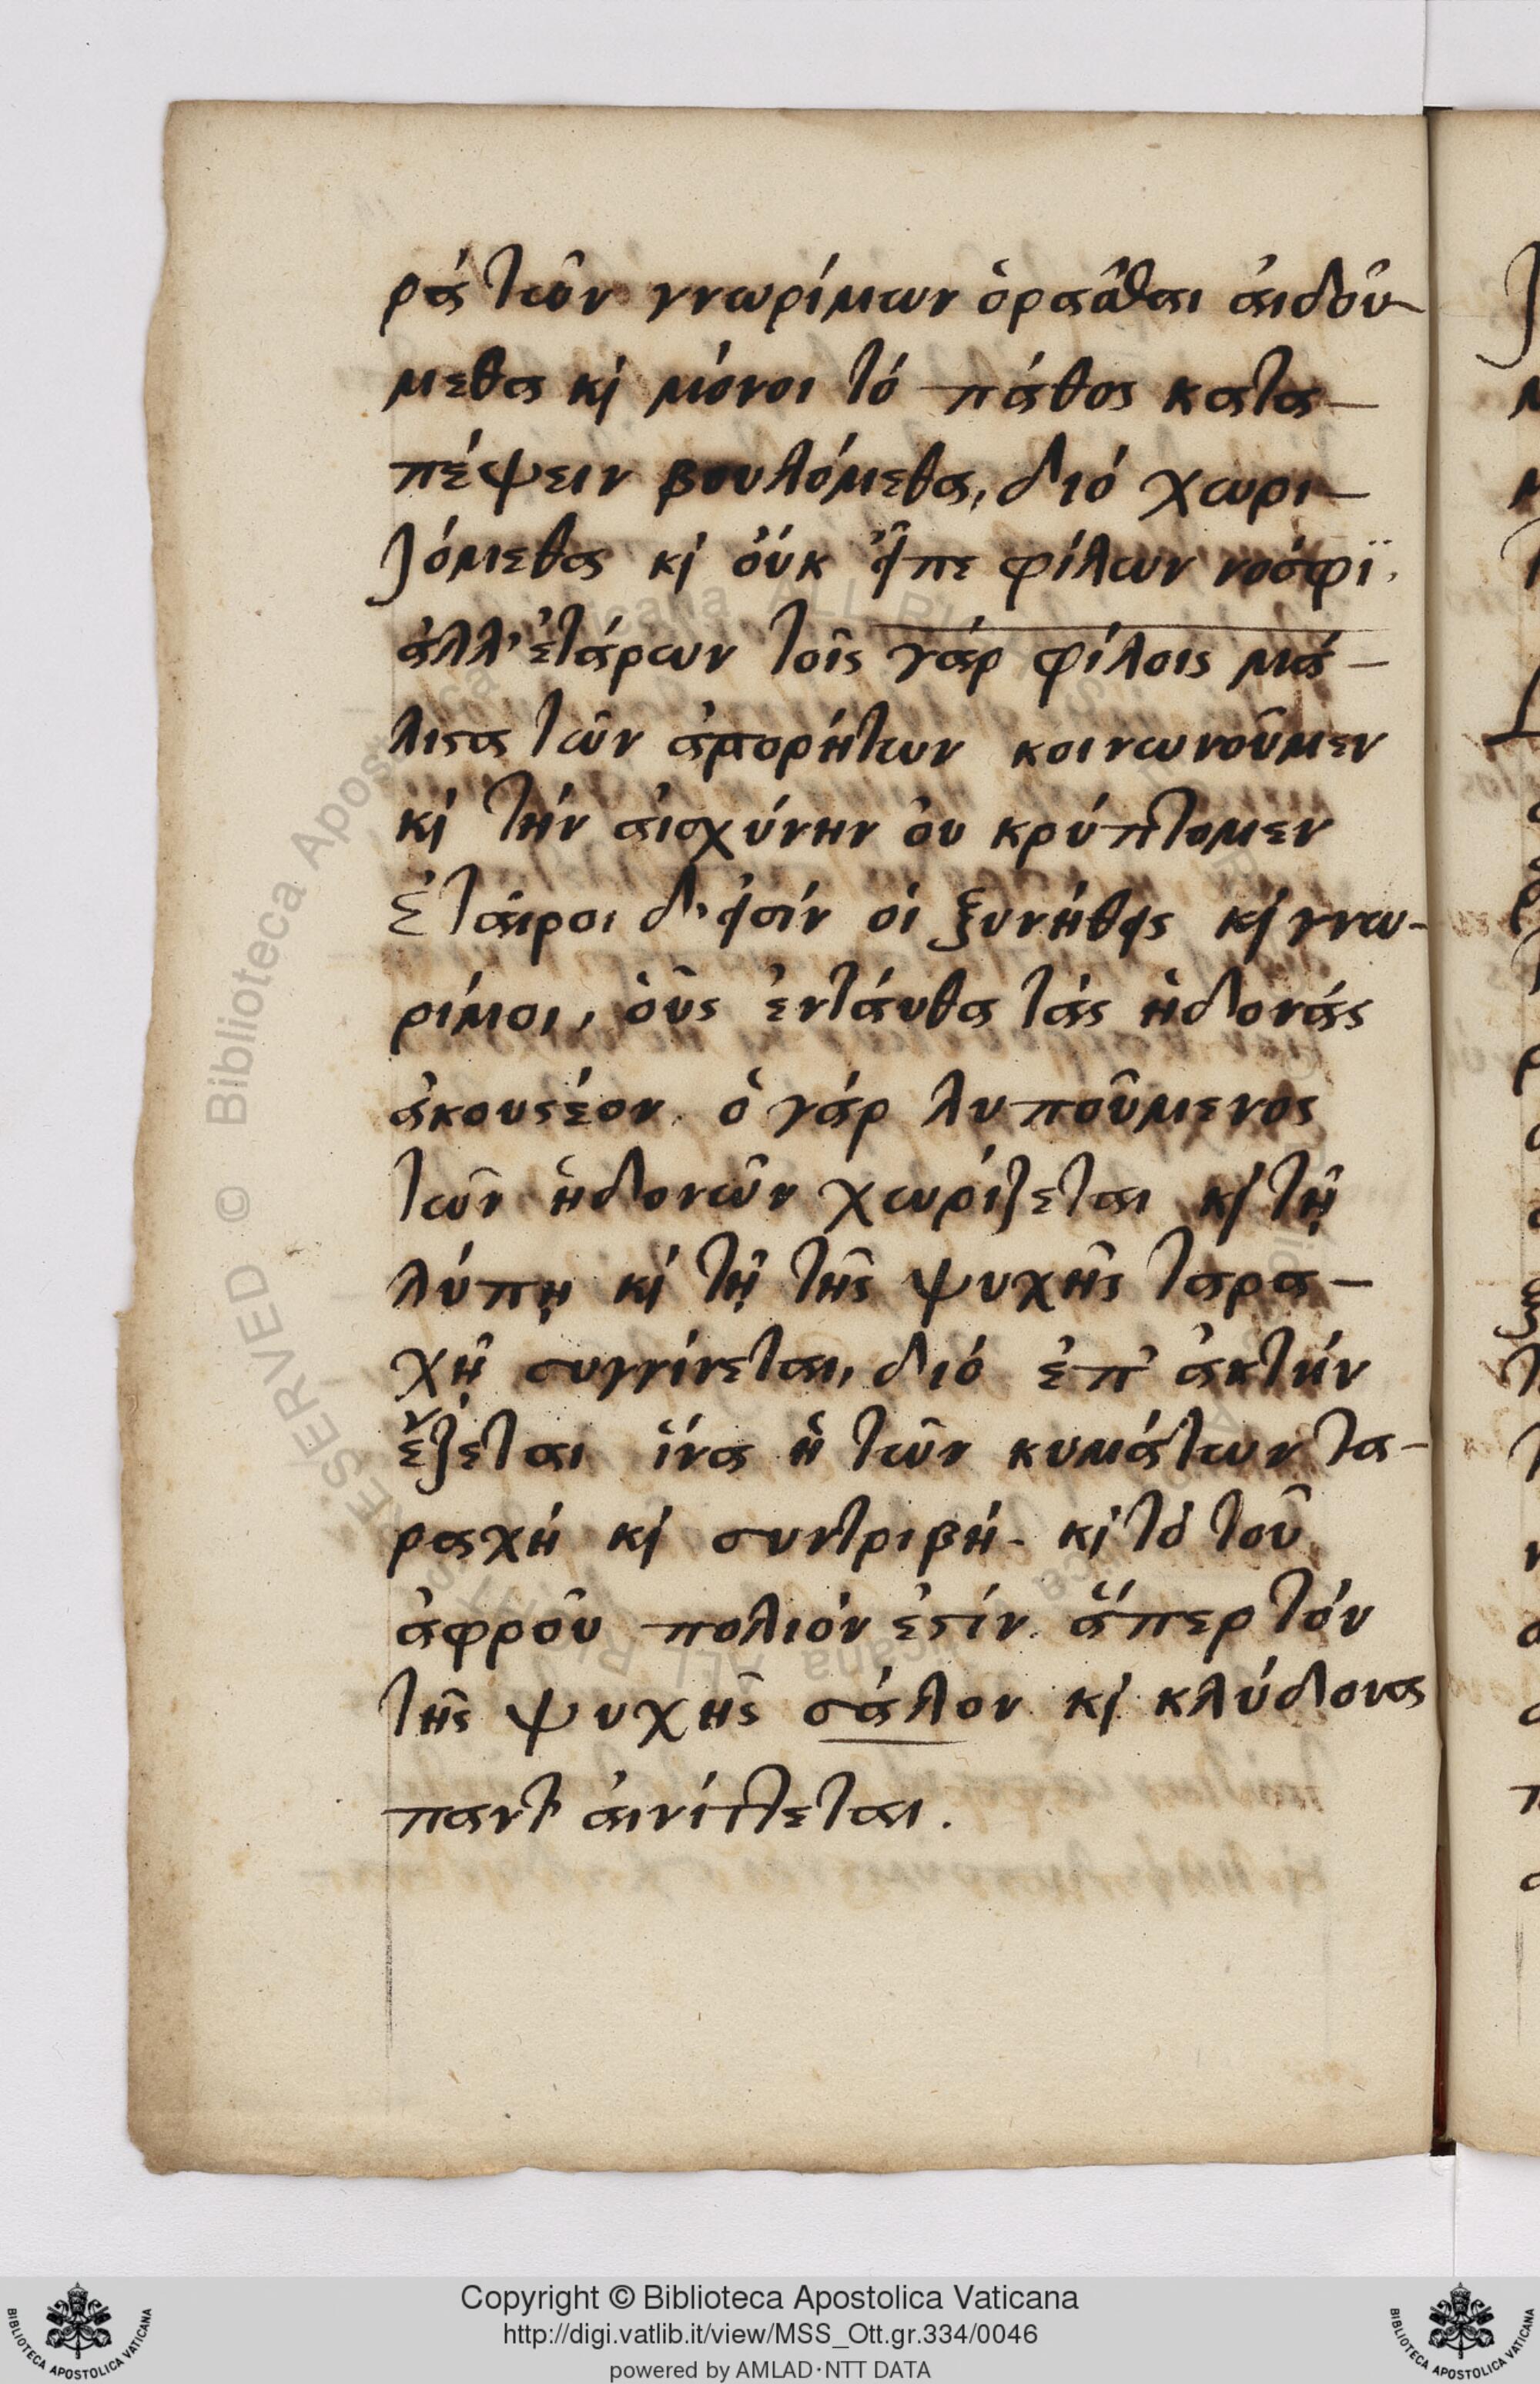 ρά τῶν γνωρίμων ὁρᾶσθαι αἰδού
μεθα κὶ μόνοι τό πάθος κατα-
πέψειν βουλόμεθα, διό χωρι-
ζόμεθα κὶ οὐκ εἶπε φίλων νόσφϊ.
ἀλλ' ἑτάρων τοῖς γάρ φίλοις μά-
λιςα τῶν ἀπορήτων κοινωνοῦμεν
κὶ τήν αἰσχύνην οὐ κρύπτομεν
ἑταίροι δ' εἰσίν οἱ ξυνήθεις κὶ γνω-
ρίμοι, οὓς ἐνταύθα τάς ἡδονάς
ἀκουςέον. ὁ γάρ λυποῦμενος
τῶν ἡδονῶν χωρίζεται κὶ τῇ
λύπῃ κὶ τῇ τῆς ψυχῆς ταρα-
χῇ συγγίνεται, διό ἐπ' ἀκτήν
ἕζεται ἵνα ἡ τῶν κυμάτων τα-
ραχή κὶ συντριβή- κὶ τό τοῦ
ἀφροῦ πολιόν ἐςίν. ἅπερ τόν
τῆς ψυχῆς σάλον κὶ κλύδωνα
παντ' αἰνίττεται.
Copyright © Biblioteca Apostolica Vaticana
http://digi.vatlib.it/view/MSS_Ott.gr.334/0046
powered by AMLAD·NTT DATA
BIBLIOTECA APOSTOLICA VATICANA
BIBLIOTECA APOSTOLICA VATICANA